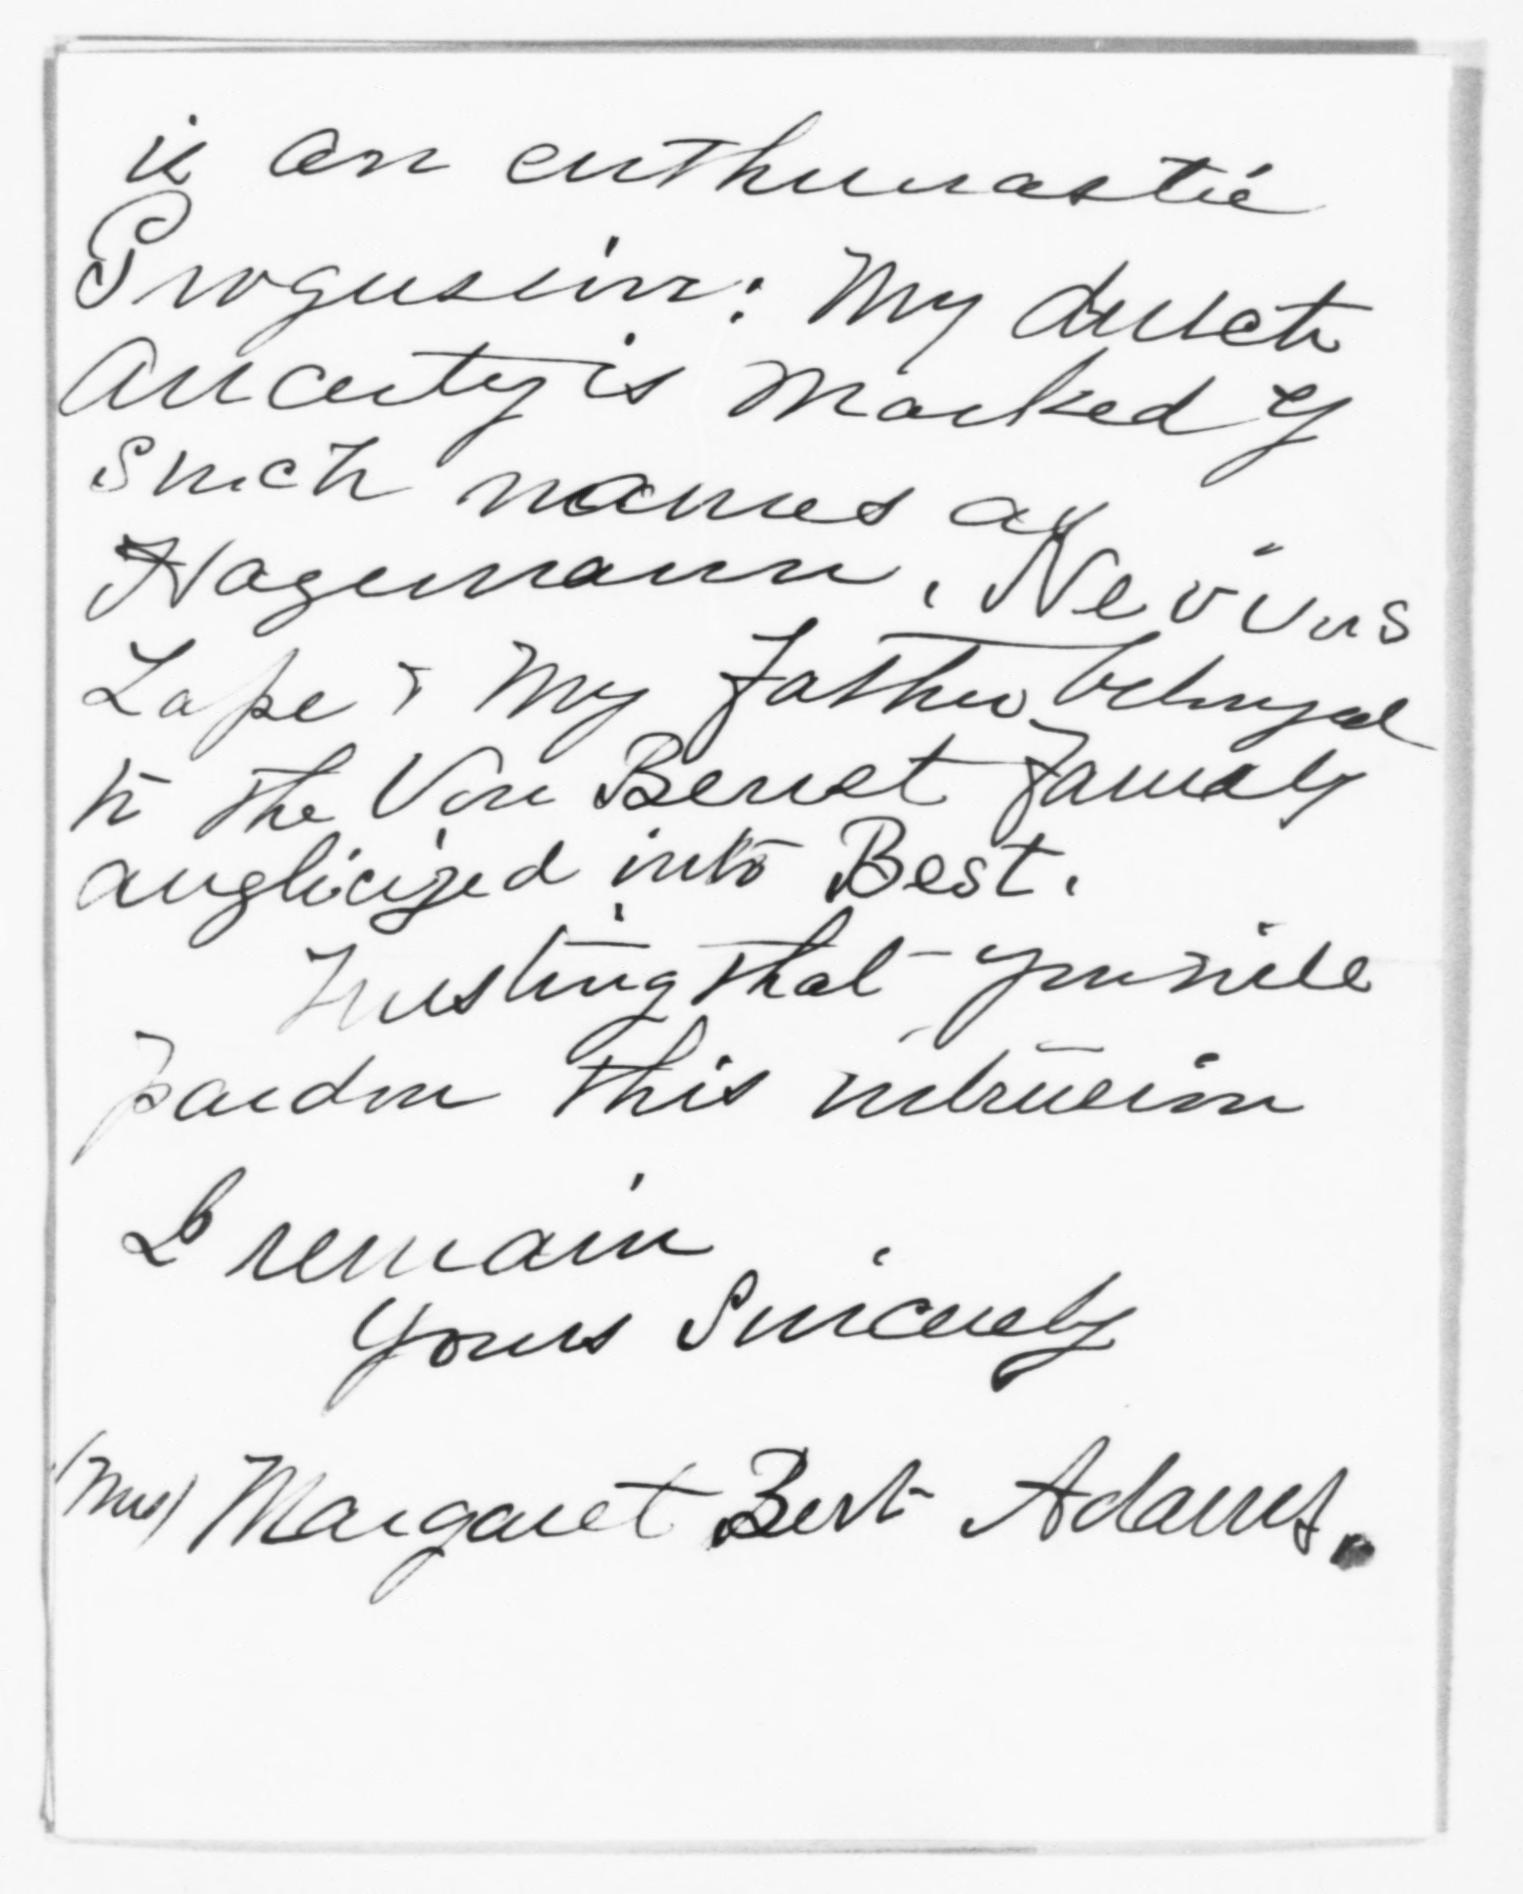 is an enthusiastic
Progressive: My dutch
Ancestry is marked by
such names as
Hagemann, Nevius
Lape & My father belonged
to the Von Benst family
anglicized into Best.
Trusting that you will
pardon this intrusion
I remain
Yours Sincerely
(Mrs) Margaret Best Adams.